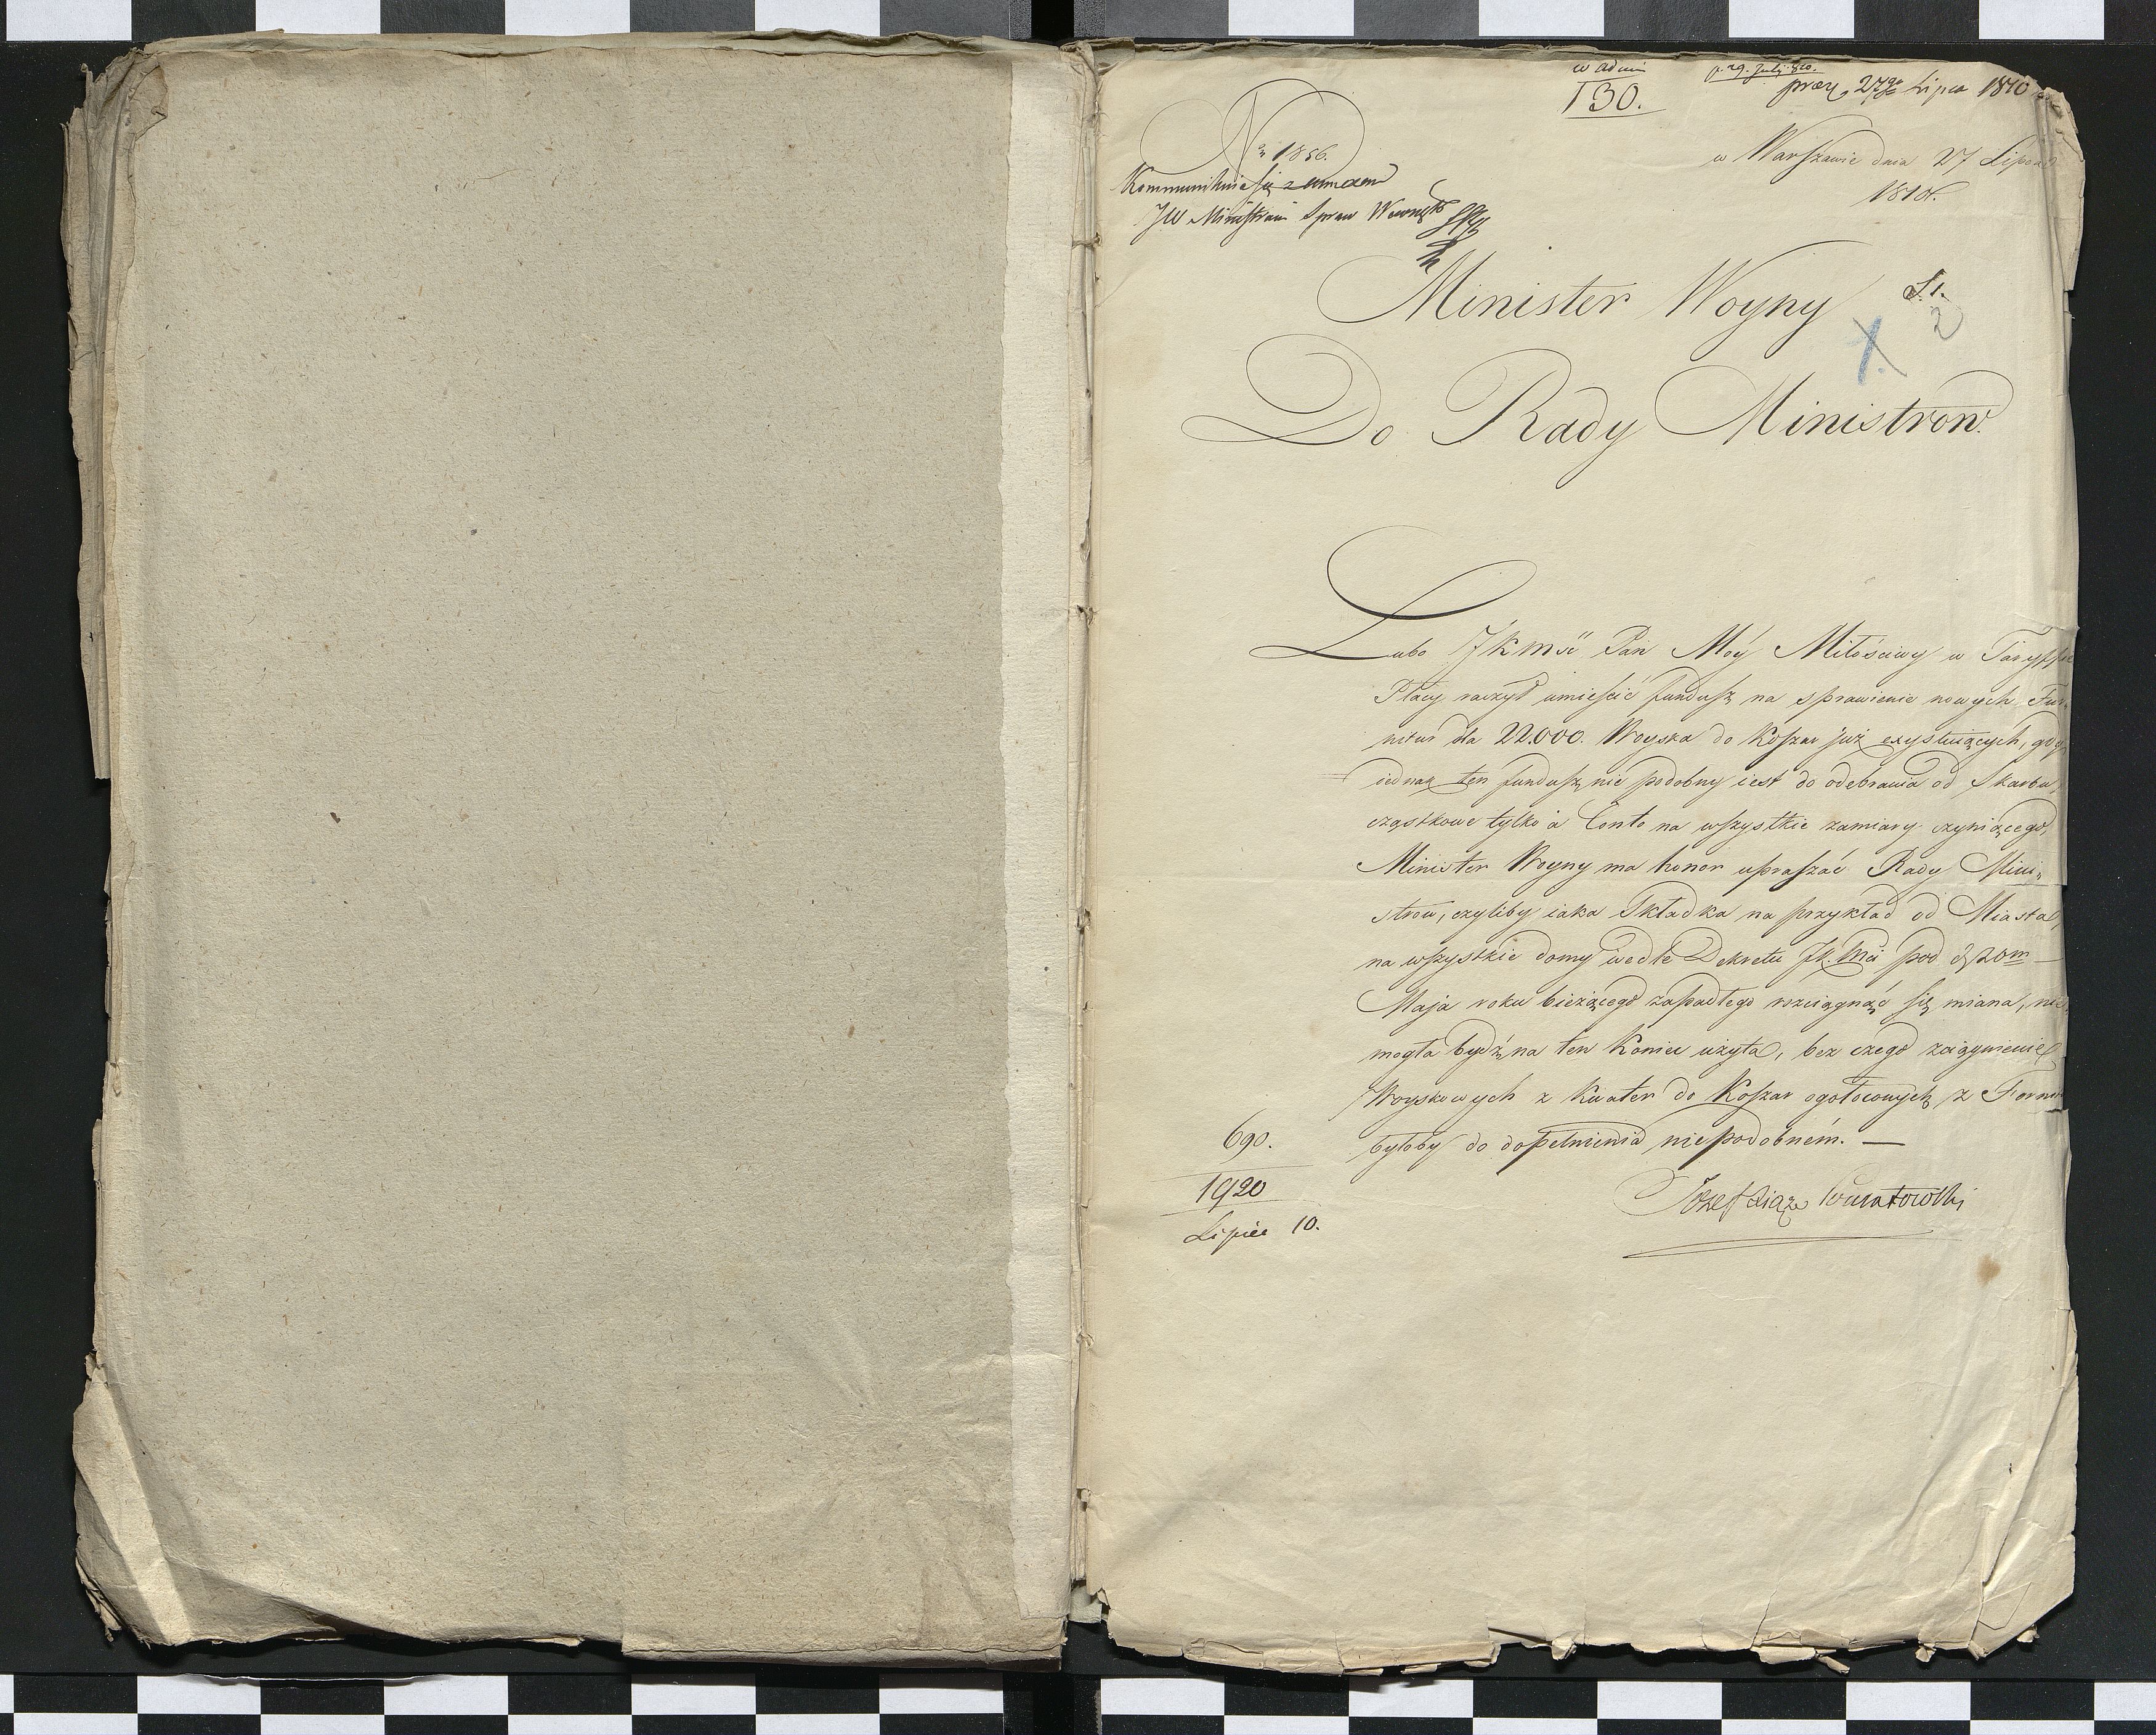 w Admi
130.
p. 29. July. 810.
præs 27go Lipca 1810
No 1856.
w Warszawie dnia 27 Lipca
1810 r.
Kommunikuie się
JW Ministrowi Spraw Wewnętr
Minister Woyny
S. 1.
2
1.
Do Rady Ministrow.
Lubo JKMść Pan Móy Miłościwy w Taryffie
Płacy raczył umieścić fundusz na sprawienie nowych Fur
nitur dla 22.000. Woyska do Koszar już exystuiących, gdy
iednak ten fundusz nie podobny iest do odebrania od Skarbu,
cząstkowe tylko à Conto na wszystkie zamiary czyniącego,
Minister Woyny ma honor upraszać Rady Mini„
strow, czyliby iaka Składka na przykład od Miasta,
na wszystkie domy wedle Dekretu JKMci pod d. 20m
Maja roku bieżącego zapadłego rozciągnąć się miana, nie
mogła bydź na ten koniec użyta, bez czego zaciągnienie
Woyskowych z kwater do Koszar ogołoconych z Fornit
byłoby do dopełnienia niepodobném. —
690.
1920
Lipiec 10.
Józef Xiąże Poniatowski